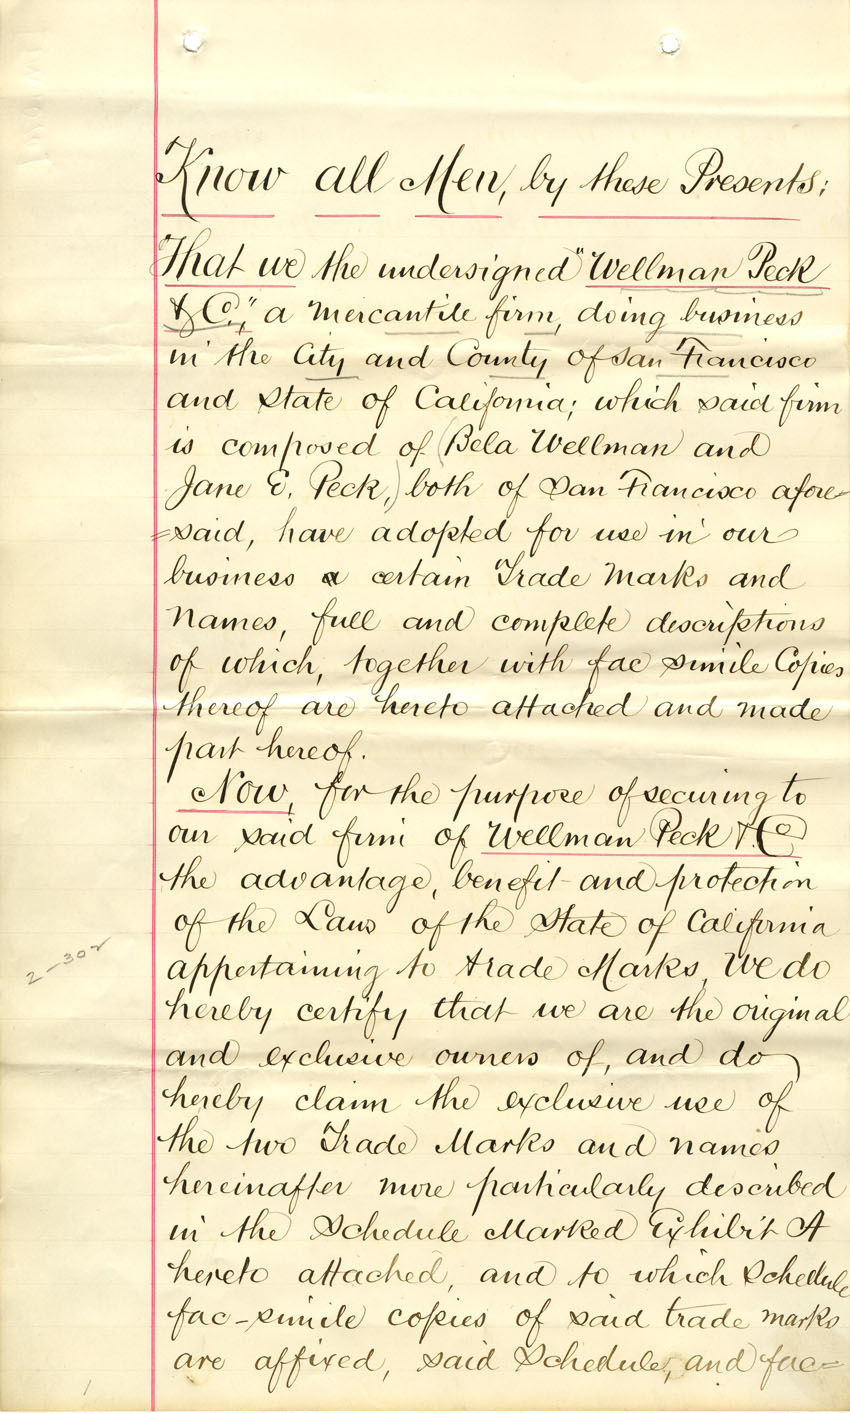 Know all Men, by these Presents:
That we the undersigned "Wellman Peck
& Co.," a Mercantile firm, doing business
in the City and County of San Francisco
and State of California; which said firm
is composed of (Bela Wellman and
Jane E. Peck,) both of San Francisco afore=
=said, have adopted for use in our
business a certain Trade Marks and
Names, full and complete descriptions
of which, together with fac simile Copies
thereof are hereto attached and made
part hereof.
Now, for the purpose of securing to
our said firm of Wellman Peck & Co
the advantage, benefit and protection
of the Laws of the State of California
appertaining to trade Marks, We do
hereby certify that we are the original
and exclusive owners of, and do
hereby claim the exclusive use of
the two Trade Marks and names
hereinafter more particularly described
in the Schedule Marked Exhibit A
hereto attached, and to which Schedule
fac-simile copies of said trade marks
are affixed, said Schedule, and fac=
2-302
1